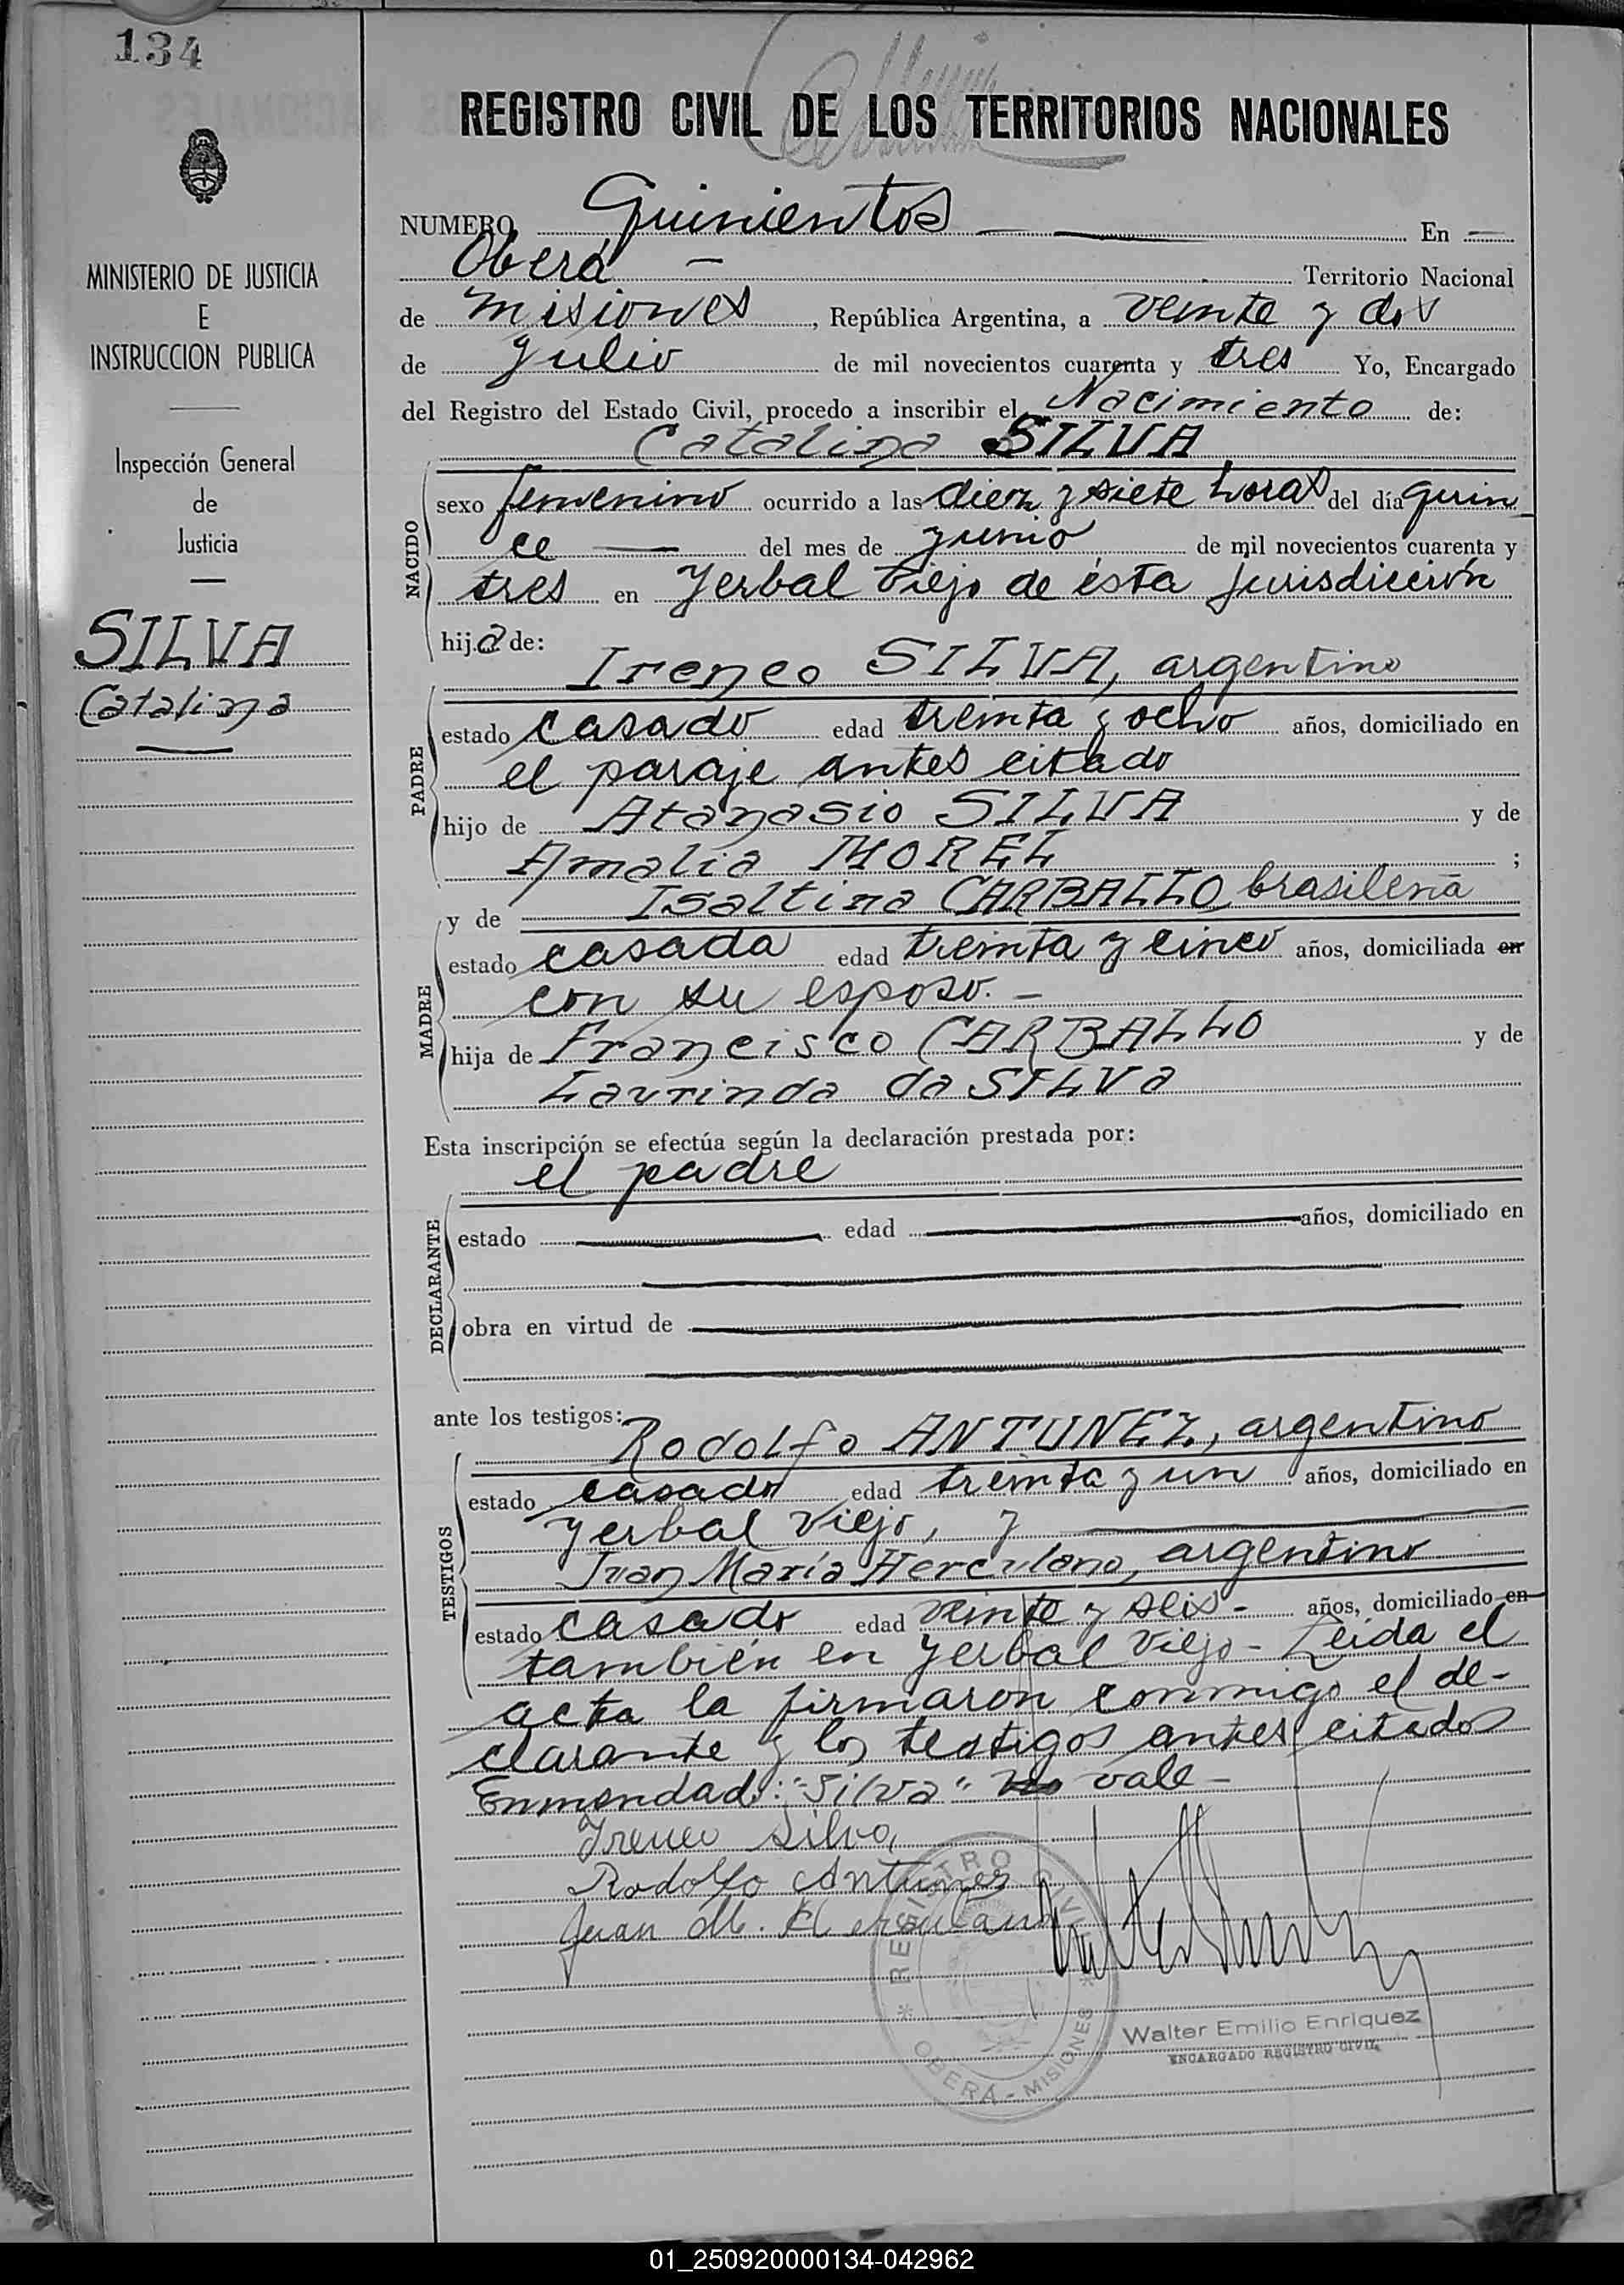 134
REGISTRO CIVIL DE LOS TERRITORIOS NACIONALES
MINISTERIO DE JUSTICIA
E
INSTRUCCION PUBLICA
Inspección General
de
Justicia
SILVA
Catalina
NUMERO Quinientos En
Oberá Territorio Nacional
de Misiones, República Argentina, a veinte y dos
de Julio de mil novecientos cuarenta y tres Yo, Encargado
del Registro del Estado Civil, procedo a inscribir el Nacimiento de:
Catalina SILVA
NACIDO
sexo femenino ocurrido a las diez y siete horas del día quin
ce del mes de junio de mil novecientos cuarenta y
tres en Yerbal Viejo de ésta jurisdicción
hija de:
Ireneo SILVA, argentino
PADRE
estado casado edad treinta y ocho años, domiciliado en
el paraje antes citado
hijo de Atanasio SILVA y de
Amalia MOREL ;
y de Isaltina CARBALLO, brasileña
MADRE
estado casada edad treinta y cinco años, domiciliada en
con su esposo. -
hija de Francisco CARBALLO y de
Laurinda da SILVA
Esta inscripción se efectúa según la declaración prestada por:
el padre
DECLARANTE
estado edad años, domiciliado en
obra en virtud de
ante los testigos:
Rodolfo ANTUNEZ, argentino
TESTIGOS
estado casado edad treinta y un años, domiciliado en
Yerbal Viejo, y
Juan María Herculano, argentino
estado casado edad veinte y seis - años, domiciliado en
también en Yerbal Viejo - Leída el
acta la firmaron conmigo el de-
clarante y los testigos antes citados
Enmendado: "Silva" vale -
Ireneo Silva
Rodolfo Antunez
Juan M. Herculano
REGISTRO CIVIL
OBERÁ - MISIONES
Walter Emilio Enriquez
ENCARGADO REGISTRO CIVIL
01_250920000134-042962